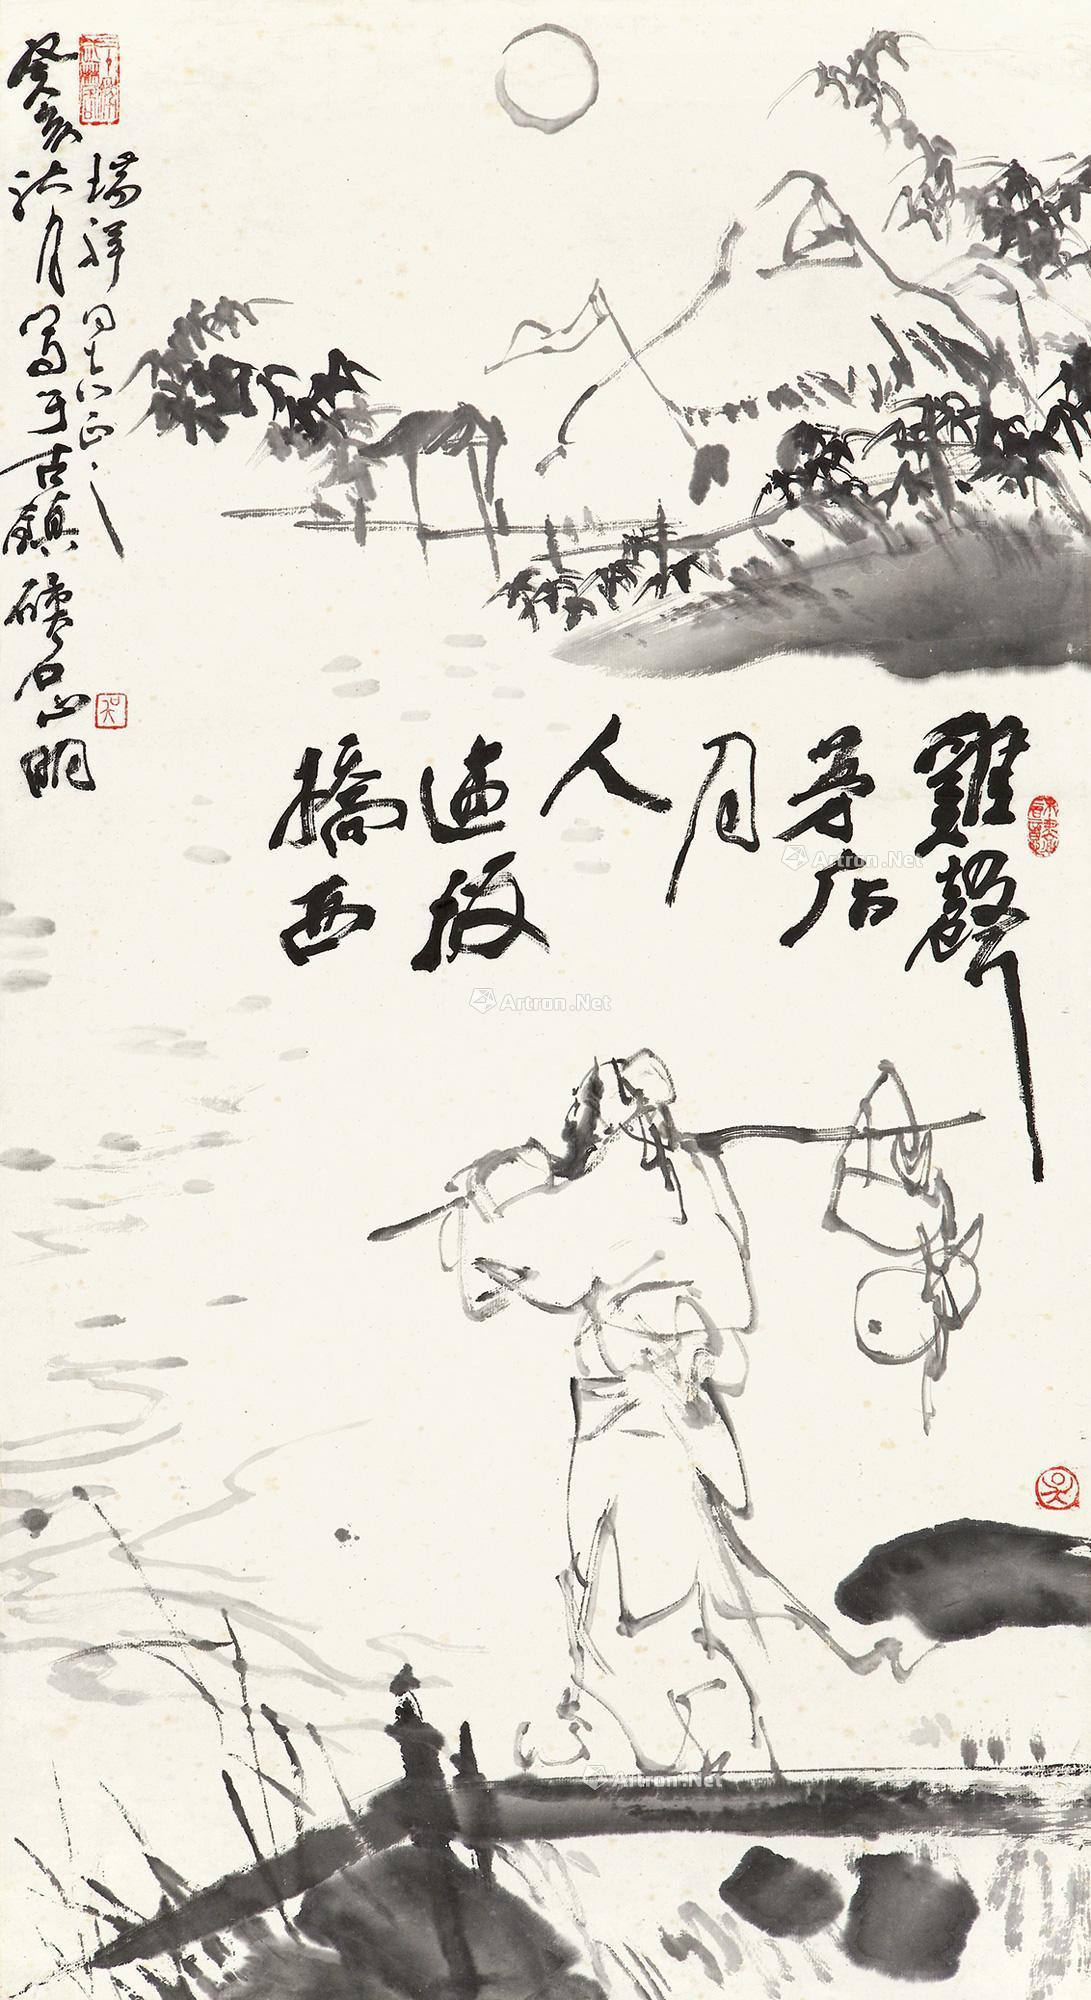 雞聲
茅店
月
人
迹板
橋西
瑞祥同志正之
癸亥秋月寫于古鎮硤石山明
Artron.Net
Artron.Net
Artron.Net